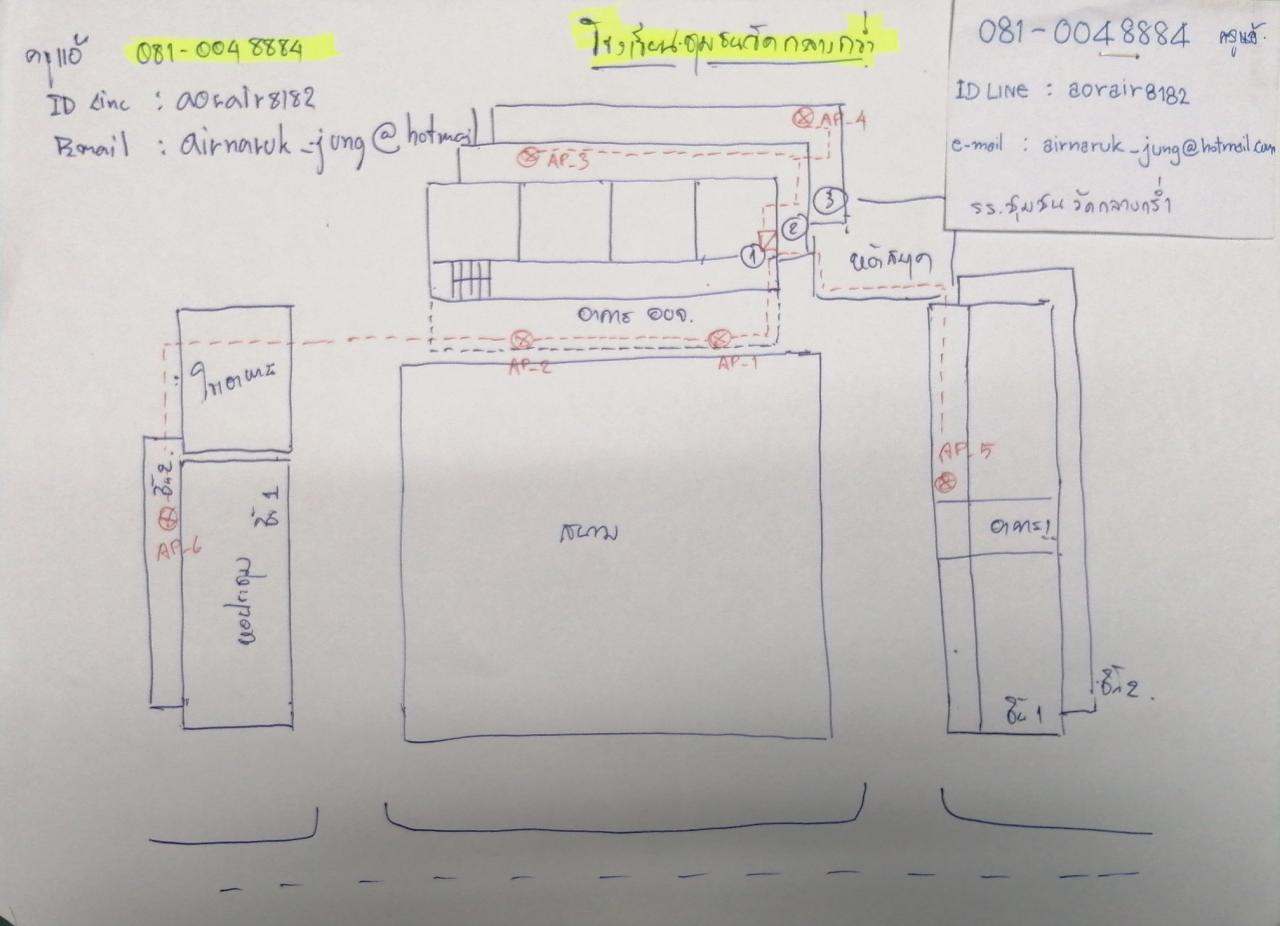 ครูแอ้ 081-0048884
ID Line : aorair8182
Email : airnaruk_jung@hotmail
โรงเรียนชุมชนวัดกลางกร่ำ
081-0048884 ครูแอ้.
ID LINE : aorair8182
e-mail : airnaruk_jung@hotmail.com
รร.ชุมชนวัดกลางกร่ำ
AP-4
AP-3
3
2
1
ห้องสมุด
อาคาร อบจ.
AP-2
AP-1
โรงอาหาร
AP-5
ชั้น2
ชั้น 1
AP-6
หอประชุม
สนาม
อาคาร1
ชั้น 2
ชั้น 1